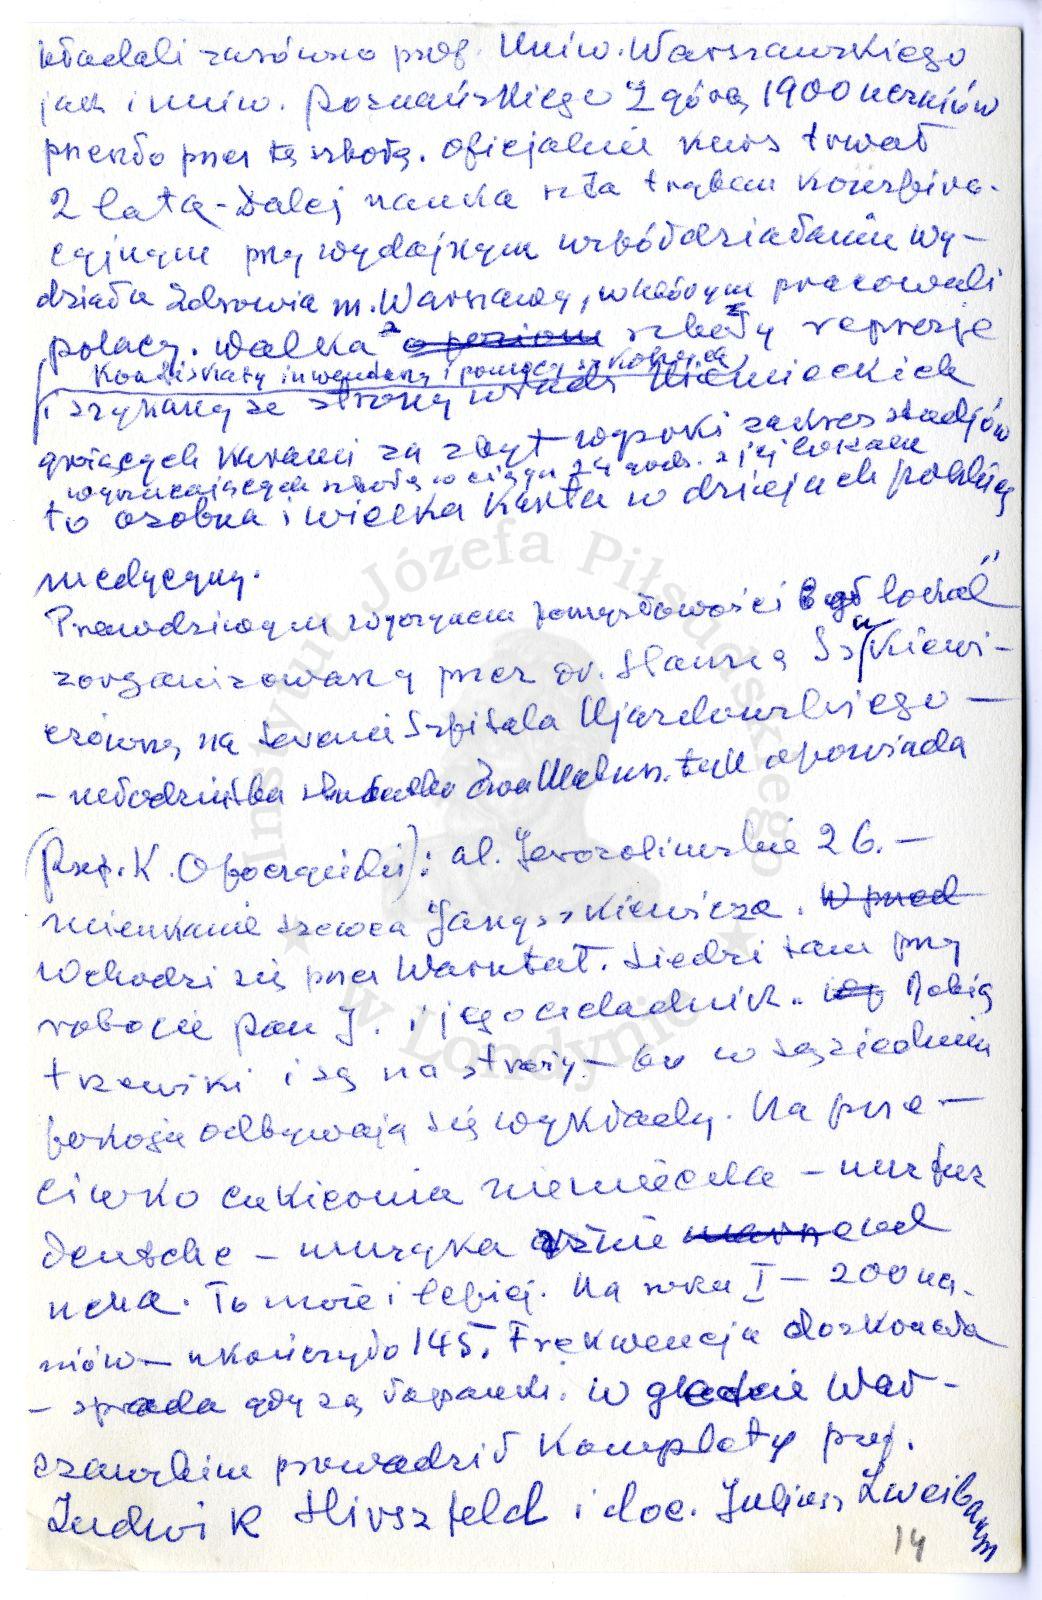 kładali zarówno prof. Uniw. Warszawskiego
jak i Uniw. Poznańskiego Z górą 1900 uczniów
przeszło przez tę szkołę. Oficjalnie kurs trwał
2 lata - Dalej nauka szła trybem konspira-
cyjnym przy wydajnym współdziałaniu Wy-
działu Zdrowia m. Warszawy, w którym pracowali
polacy. Walka z szkoły represje
konfiskaty inwentarzy i pomocy szkolnych
i szykany ze strony władz Niemieckich
grożących karami za zbyt wysoki zakres studjów
wyrzucających szkołę w ciągu 24 godz. z jej lokalu
to osobna i wielka karta w dziejach polskiej
medycyny.
Prawdziwym wyczynem pomysłowości był lokal"
zorganizowany przez dr. Hannę
na terenie Szpitala Ujazdowskiego -
- opowiada
(Prof. K. ): al. Jerozolimskie 26. -
mieszkanie szewca Januszkiewicza. W przed
Wchodzi się przez Warsztat. Siedzi tam przy
robocie pan J. i jego czeladnik. Robią
trzewiki i są na straży - bo w sąsiednim
pokoju odbywają się wykłady. Na prze-
ciwko cukiernia niemiecka - nur fur
Deutsche - muzyka rżnie od
ucha. To może i lepiej. Na roku I - 200 ucz-
niów - ukończyło 145. Frekwencja doskonała
- spada gdy są łapanki. W getcie War-
szawskim prowadził Komplety prof.
Ludwik Hirszfeld i doc. Juliusz Zweibaum
14
Instytut Józefa Piłsudskiego
w Londynie